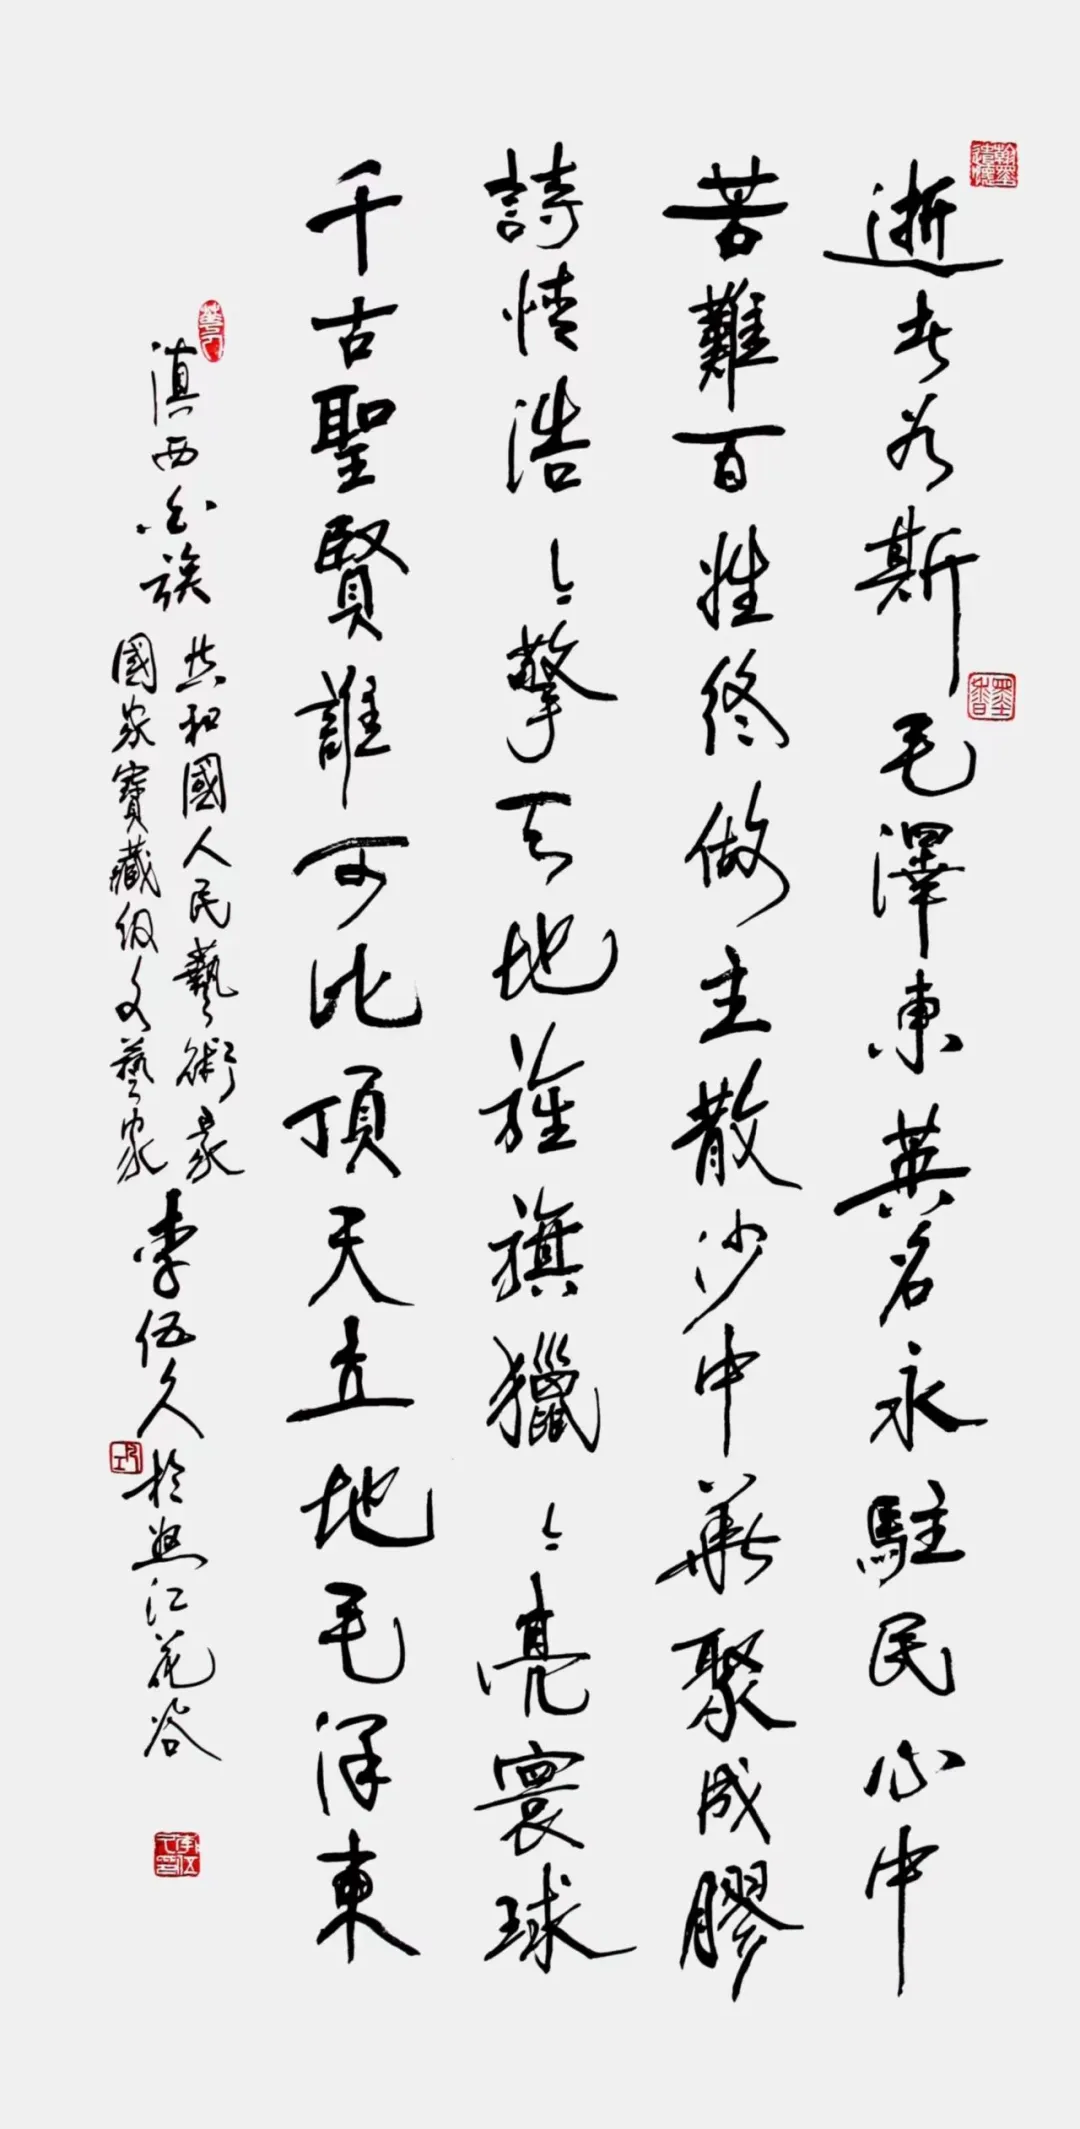 逝者如斯毛澤東英名永駐民心中
苦難百姓終做主散沙中華聚成膠
詩情浩々擎天地旌旗獵々亮寰球
千古聖賢誰可比頂天立地毛泽東
滇西白族
共和國人民藝術家
國家寶藏級文藝家
李伍久於怒江花谷
墨香